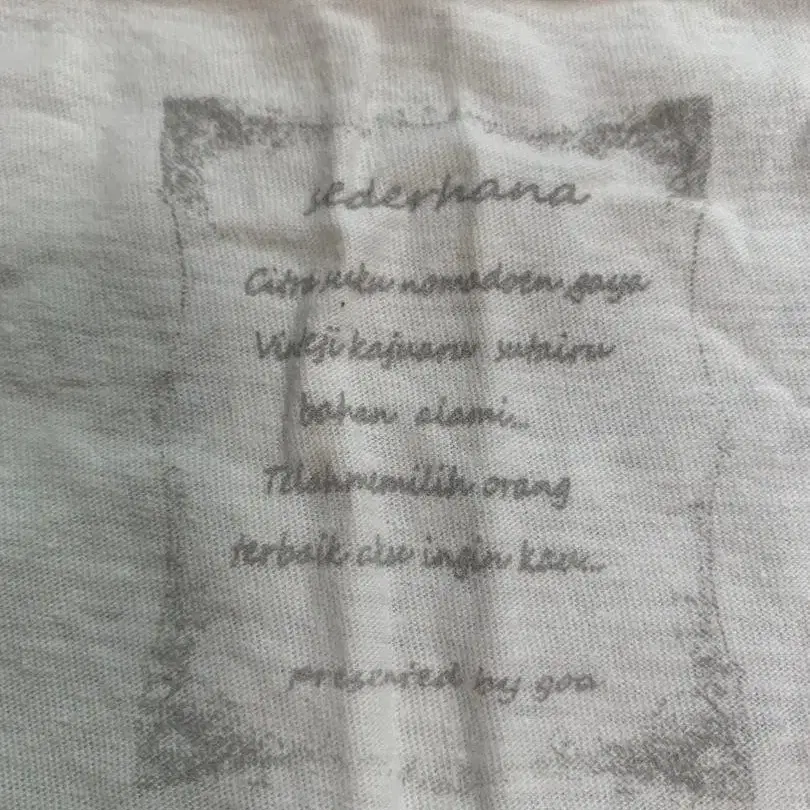 sederhana
Citra suku nomadoen gaya
Vinteji kajuaru sutairu
bahen alami...
Telah memilih orang
terbaik aku ingin kau...
presented by goa